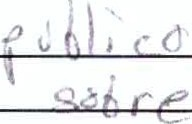 público
sobre